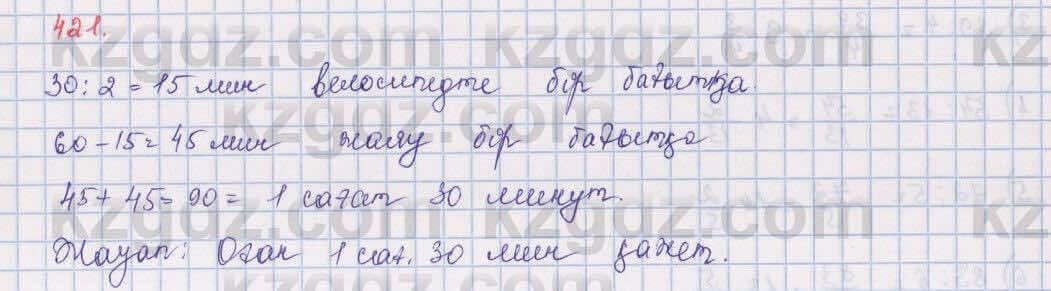 421.
30 : 2 = 15 мин велосипедте бір бағытқа.
60 - 15 = 45 мин жаяу бір бағытқа
45 + 45 = 90 = 1 сағат 30 минут.
Жауап: Оған 1 сағ. 30 мин қажет.
kzgdz.com